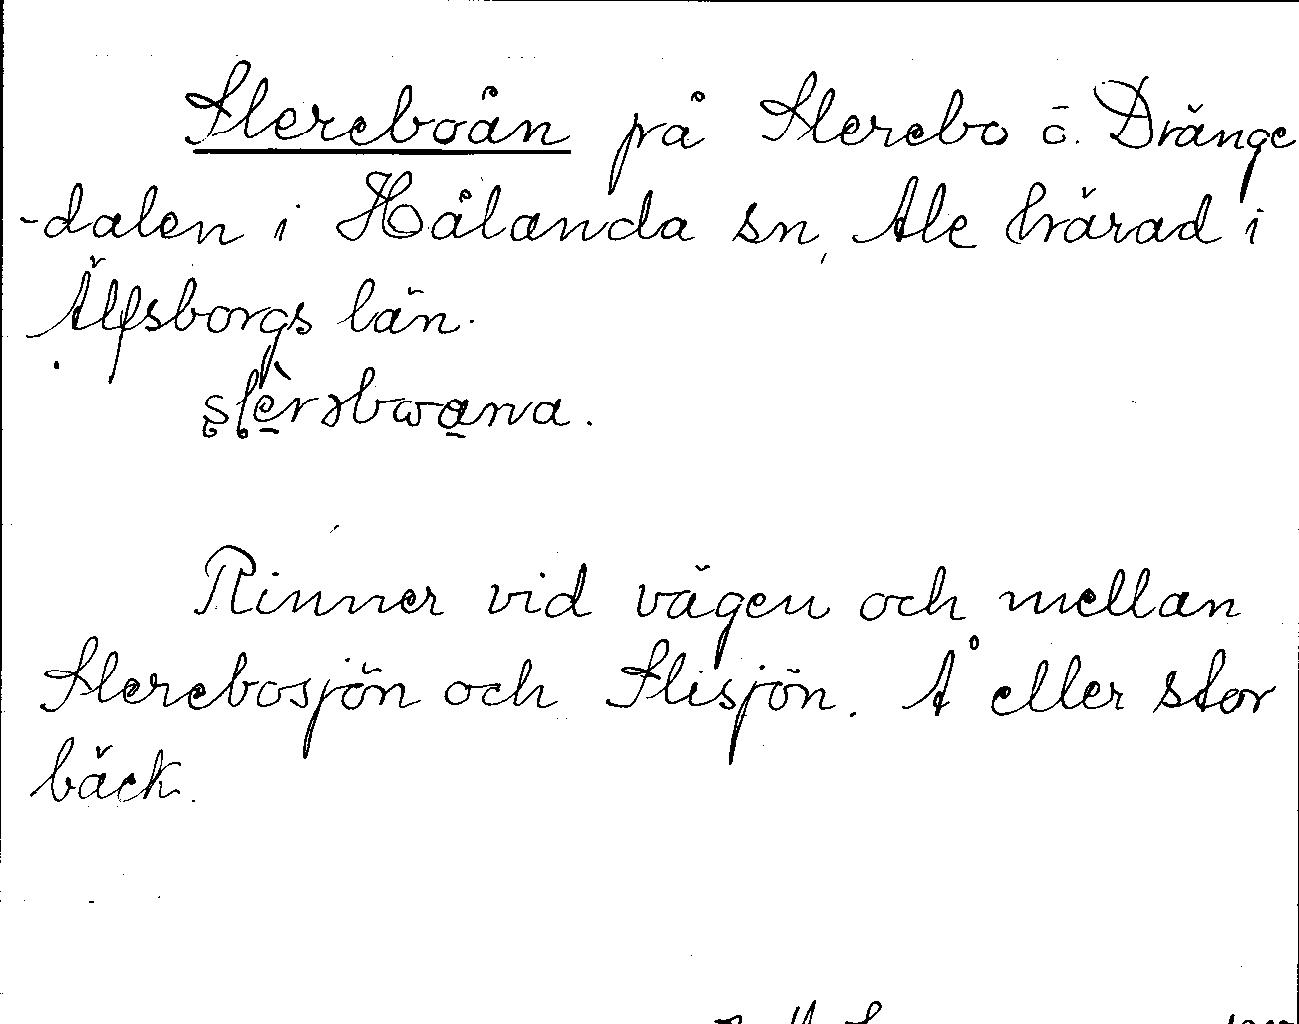 Slereboån på Slerebo ö. Dränge
-dalen i Hålanda sn, Ale härad i
Älfsborgs län.
slèrəbwana.
Rinner vid vägen och mellan
Slerebosjön och Slisjön. Å eller stor
bäck.